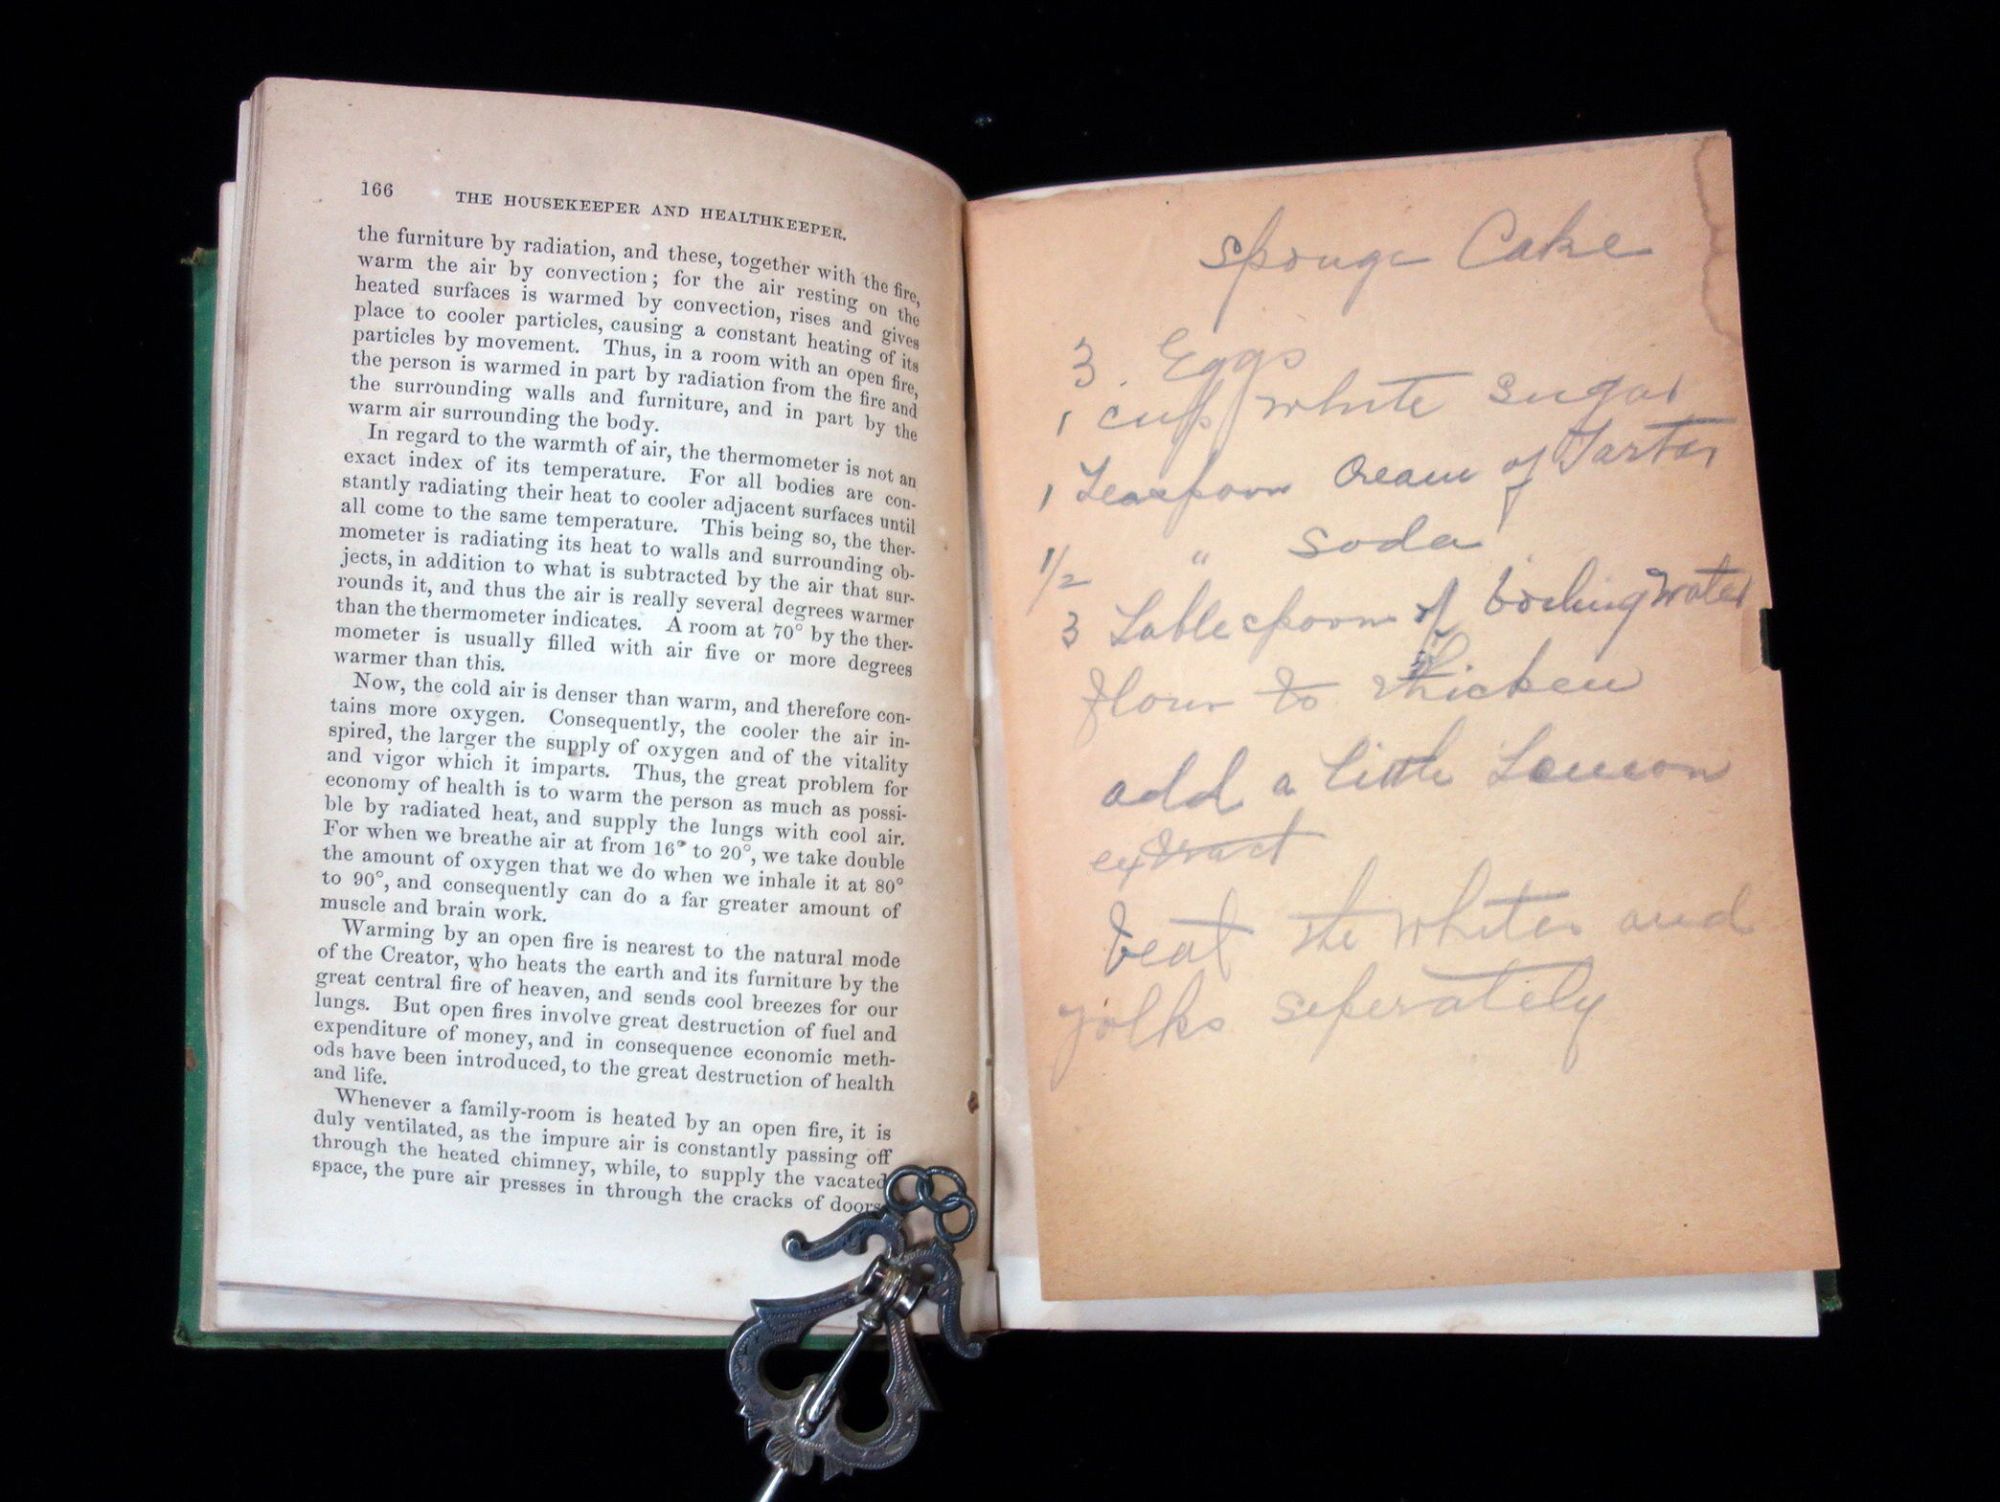 166
THE HOUSEKEEPER AND HEALTHKEEPER.
the furniture by radiation, and these, together with the fire,
warm the air by convection; for the air resting on the
heated surfaces is warmed by convection, rises and gives
place to cooler particles, causing a constant heating of its
particles by movement. Thus, in a room with an open fire,
the person is warmed in part by radiation from the fire and
the surrounding walls and furniture, and in part by the
warm air surrounding the body.
In regard to the warmth of air, the thermometer is not an
exact index of its temperature. For all bodies are con-
stantly radiating their heat to cooler adjacent surfaces until
all come to the same temperature. This being so, the ther-
mometer is radiating its heat to walls and surrounding ob-
jects, in addition to what is subtracted by the air that sur-
rounds it, and thus the air is really several degrees warmer
than the thermometer indicates. A room at 70° by the ther-
mometer is usually filled with air five or more degrees
warmer than this.
Now, the cold air is denser than warm, and therefore con-
tains more oxygen. Consequently, the cooler the air in-
spired, the larger the supply of oxygen and of the vitality
and vigor which it imparts. Thus, the great problem for
economy of health is to warm the person as much as possi-
ble by radiated heat, and supply the lungs with cool air.
For when we breathe air at from 16° to 20°, we take double
the amount of oxygen that we do when we inhale it at 80°
to 90°, and consequently can do a far greater amount of
muscle and brain work.
Warming by an open fire is nearest to the natural mode
of the Creator, who heats the earth and its furniture by the
great central fire of heaven, and sends cool breezes for our
lungs. But open fires involve great destruction of fuel and
expenditure of money, and in consequence economic meth-
ods have been introduced, to the great destruction of health
and life.
Whenever a family-room is heated by an open fire, it is
duly ventilated, as the impure air is constantly passing off
through the heated chimney, while, to supply the vacated
space, the pure air presses in through the cracks of doors,
Sponge Cake
3. Eggs
1 cup white Sugar
1 Teaspoon Cream of Tartar
1/2 " Soda
3 Tablespoon of boiling water
flour to thicken
add a little Lemon
extract
beat the whites and
yolks seperately